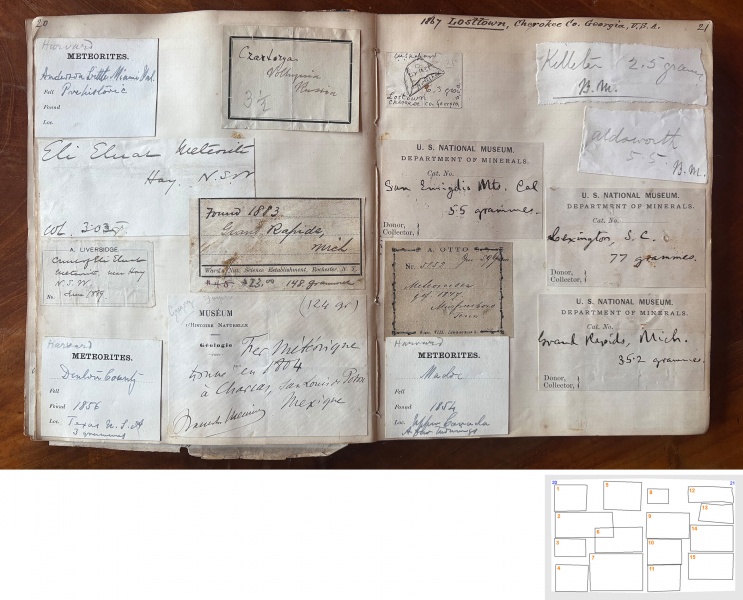 20
Harvard
METEORITES.
Anderson Little Miami Val.
Fell Prehistoric
Found
Loc.
Czartorya
Volhynia
Russia
3 1/2
Eli Elwah Meteorite
Hay. N.S.W
Wt. 303
A. LIVERSIDGE.
Eli Elwah
Meteorite, near Hay
N.S.W
No. 1889
Found 1883
Grand Rapids,
Mich
Ward's Nat. Science Establishment, Rochester, N. Y.
$23.00 148 grammes
Harvard
METEORITES.
Denton County
Fell
Found 1856
Loc. Texas U.S.A
3 grammes
(124 gr)
MUSÉUM
D'HISTOIRE NATURELLE
Géologie
Fer Météorique
donné en 1804
à Charcas, San Louis de Potosi
Mexique
Stanislas Meunier
1867 Losttown, Cherokee Co. Georgia, U.S.A.
21
Losttown
Cherokee Co. Georgia
U. S. NATIONAL MUSEUM.
DEPARTMENT OF MINERALS.
Cat. No.
San Emigdio Mts. Cal
55 grammes.
Donor,
Collector,
A. OTTO
Nr. 5
Meteoreisen
gef. 1847
Murfreesboro
Tenn
Harvard
METEORITES.
Madoc
Fell
Found 1854
Loc. Upper Canada
A few shavings
Killeter 2.5 grammes
B.M.
Aldsworth
5.5
B.M.
U. S. NATIONAL MUSEUM.
DEPARTMENT OF MINERALS.
Cat. No.
Lexington, S. C.
77 grammes.
Donor,
Collector,
U. S. NATIONAL MUSEUM.
DEPARTMENT OF MINERALS.
Cat. No.
Grand Rapids, Mich.
35.2 grammes.
Donor,
Collector,
20
21
1
5
8
12
2
13
9
6
14
3
10
7
15
4
11